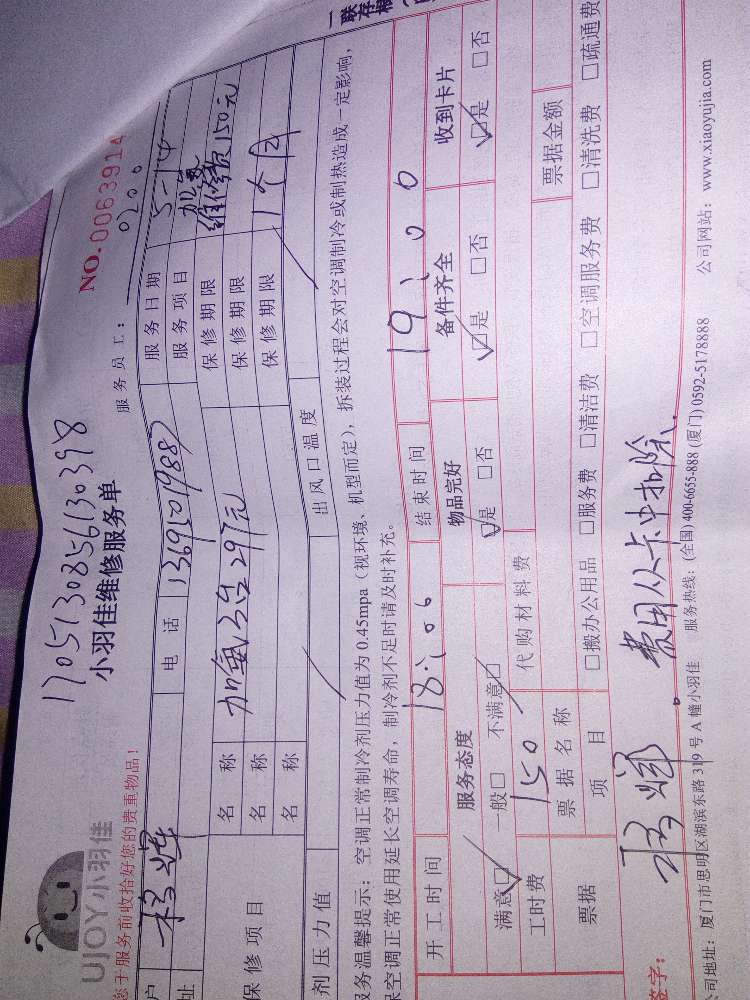 一联存根
17051308561​30398
UJOY小羽佳
小羽佳维修服务单
NO.0063914
您于服务前收拾好您的贵重物品！
服务员工：
0200
户
杨辉
电 话
13695019887
服务日期
5-14
址
服务项目
加氟
维修费150元
保修项目
名 称
加氟 297元
保修期限
名 称
保修期限
1个月
名 称
保修期限
剂压力值
出风口温度
务温馨提示：空调正常制冷剂压力值为 0.45mpa（视环境、机型而定），拆装过程会对空调制冷或制热造成一定影响，
保空调正常使用延长空调寿命，制冷剂不足时请及时补充。
开工时间
18:00
结束时间
19:00
服务态度
物品完好
备件齐全
收到卡片
满意□ 一般□ 不满意□
□是 □否
□是 □否
□是 □否
工时费
150
代购材料费
票据
票据名称
票据金额
项 目
□搬办公用品 □服务费 □清洁费 □空调服务费 □清洗费 □疏通费
签字：
杨辉。费用从卡中扣除.
公司地址：厦门市思明区湖滨东路 319 号 A 幢小羽佳 服务热线：(全国) 400-6655-888 (厦门) 0592-5178888 公司网站：www.xiaoyujia.com